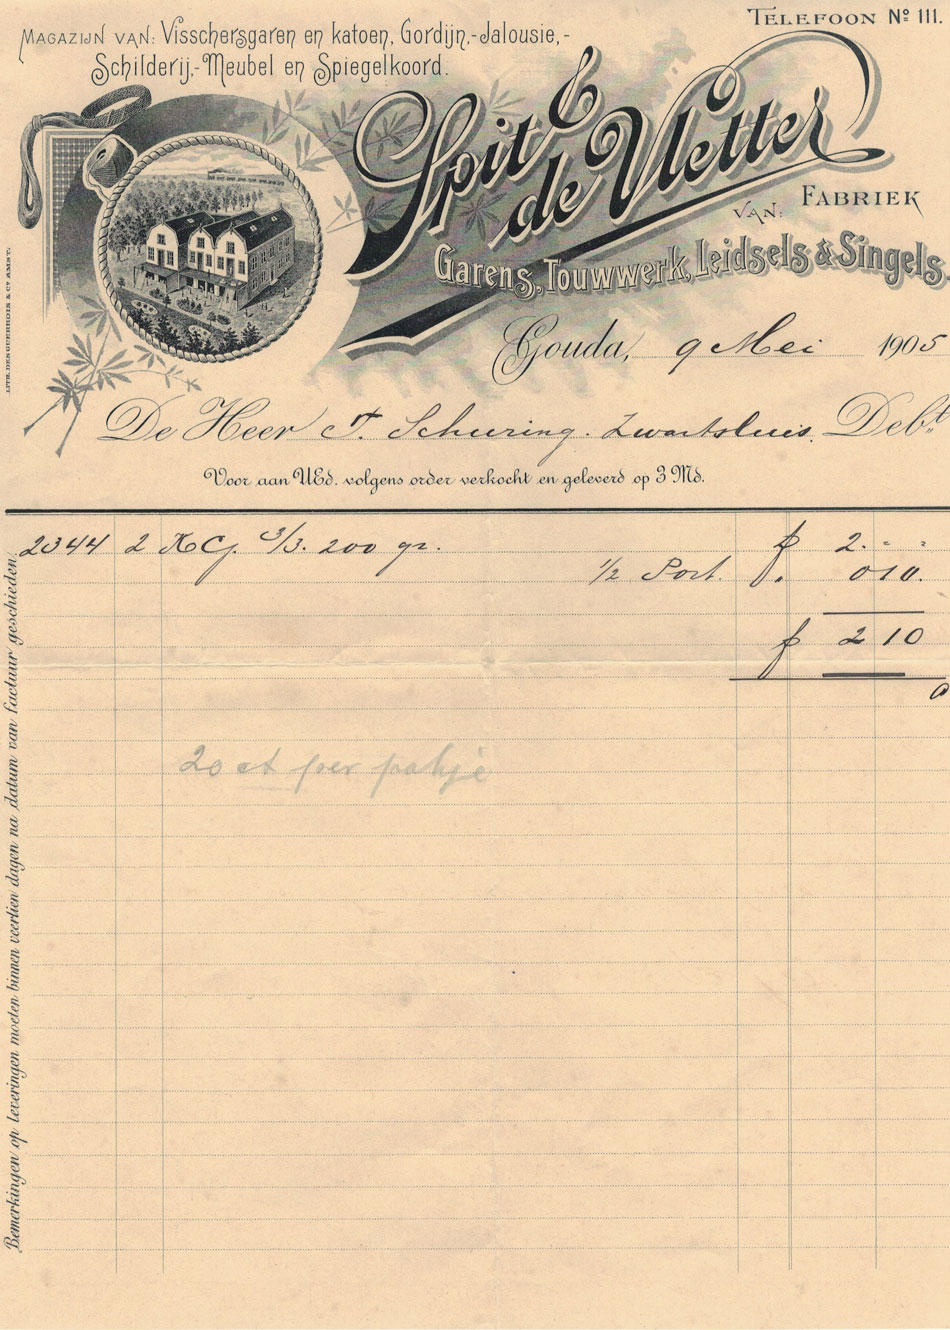 TELEFOON No 111.
MAGAZIJN VAN: Visschersgaren en katoen, Gordijn,-Jalousie,-
Schilderij,-Meubel en Spiegelkoord.
Spit &
de Vletter
VAN: FABRIEK
Garens, Touwwerk, Leidsels & Singels.
Gouda, 9 Mei 1905
De Heer T. Schuring. Zwartsluis. Debt.
Voor aan UEd. volgens order verkocht en geleverd op 3 Md.
2344 2 KG. 3/3. 200 gr. f 2. - -
1/2 Port. f. 0 10.
f 2 10
20 ct per pakje
Bemerkingen op leveringen moeten binnen veertien dagen na datum van factuur geschieden.
LITH. DESGUERROIS & Co AMST.